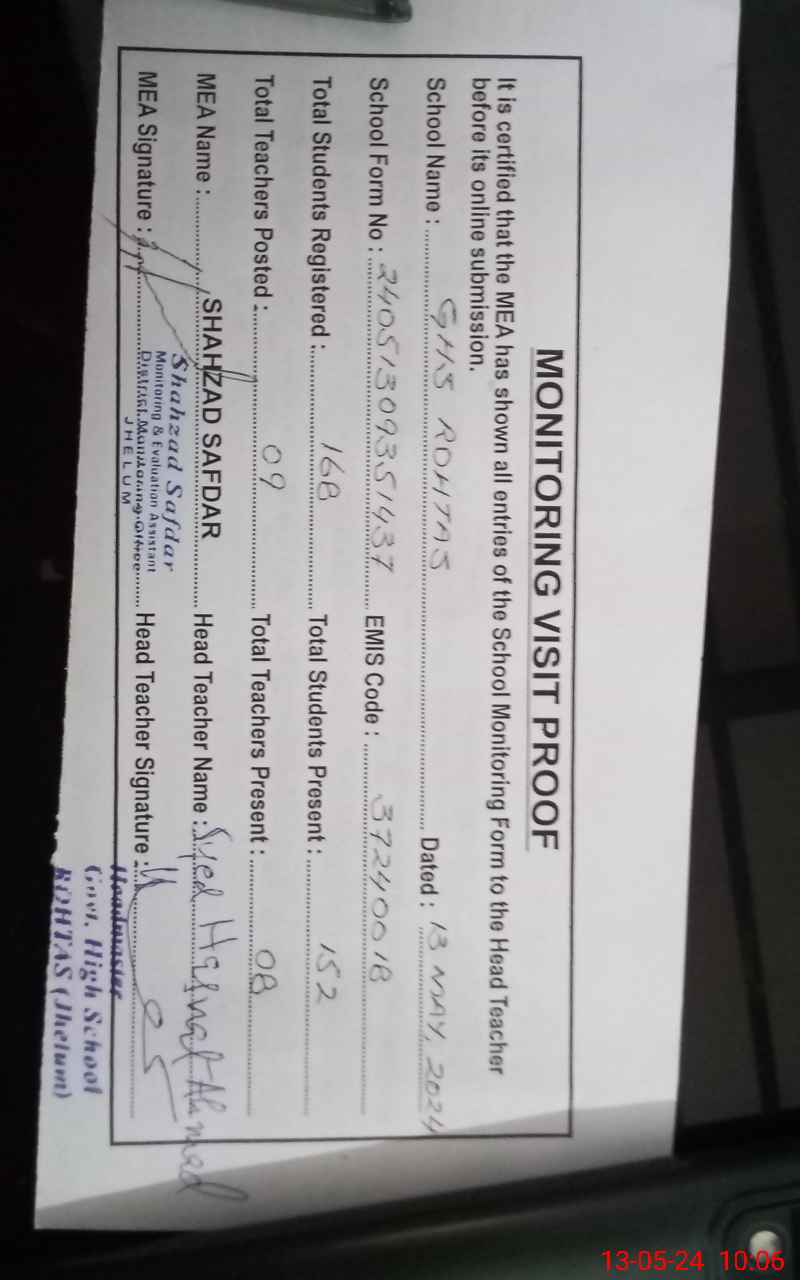 MONITORING VISIT PROOF
It is certified that the MEA has shown all entries of the School Monitoring Form to the Head Teacher
before its online submission.
School Name : GHS ROHTAS Dated : 13 MAY, 2024
School Form No : 24051309351437 EMIS Code : 37240018
Total Students Registered : 168 Total Students Present : 152
Total Teachers Posted : 09 Total Teachers Present : 08
MEA Name : SHAHZAD SAFDAR Head Teacher Name : Syed Hasnat Ahmed
MEA Signature : Head Teacher Signature :
Shahzad Safdar
Monitoring & Evaluation Assistant
District Monitoring Office
JHELUM
Headmaster
Govt. High School
ROHTAS (Jhelum)
13-05-24 10:06